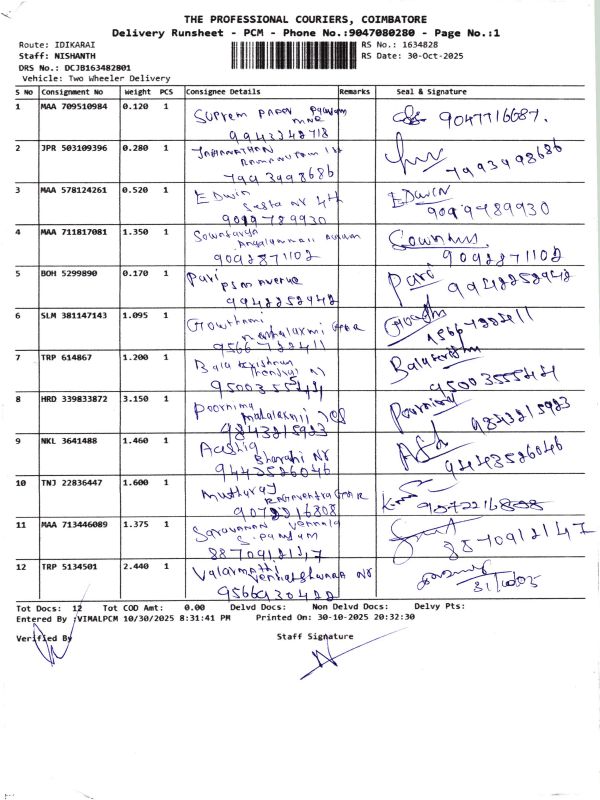 THE PROFESSIONAL COURIERS, COIMBATORE
Delivery Runsheet - PCM - Phone No.:9047080280 - Page No.:1
Route: IDIKARAI RS No.: 1634828
Staff: NISHANTH RS Date: 30-Oct-2025
DRS No.: DCJB163482801
Vehicle: Two Wheeler Delivery
S No Consignment No Weight PCS Consignee Details Remarks Seal & Signature
1 MAA 709510984 0.120 1 Suprem
9943348718 9047716687.
2 JPR 503109396 0.280 1 JABANATHAN
7993498686 7993498686
3 MAA 578124261 0.520 1 EDwin EDWIN
Sasta Nr 4th
9099789930 9099789930
4 MAA 711817081 1.350 1 Sowntarya
9092871102 9092871102
5 BOH 5299890 0.170 1 Pari Pari
PSM Avenue
9942252942 9942252942
6 SLM 381147143 1.095 1 Gowthami
mahalaxmi
9566722411
7 TRP 614867 1.200 1 Bala krishnan
9500355544
8 HRD 339833872 3.150 1 Poornima
mahalaxmi
9843215923 9843215923
9 NKL 3641488 1.460 1 Aashiq
Bharathi Nr
9443526046 9443526046
10 TNJ 22836447 1.600 1 Muthuraj
Ragavendra
9072216808
11 MAA 713446089 1.375 1 Saravanan
8870912147 8870912147
12 TRP 5134501 2.440 1 Valarmathi
Venkateshwara Nr
9566930422
Tot Docs: 12 Tot COD Amt: 0.00 Delvd Docs: Non Delvd Docs: Delvy Pts:
Entered By :VIMALPCM 10/30/2025 8:31:41 PM Printed On: 30-10-2025 20:32:30
Verified By Staff Signature